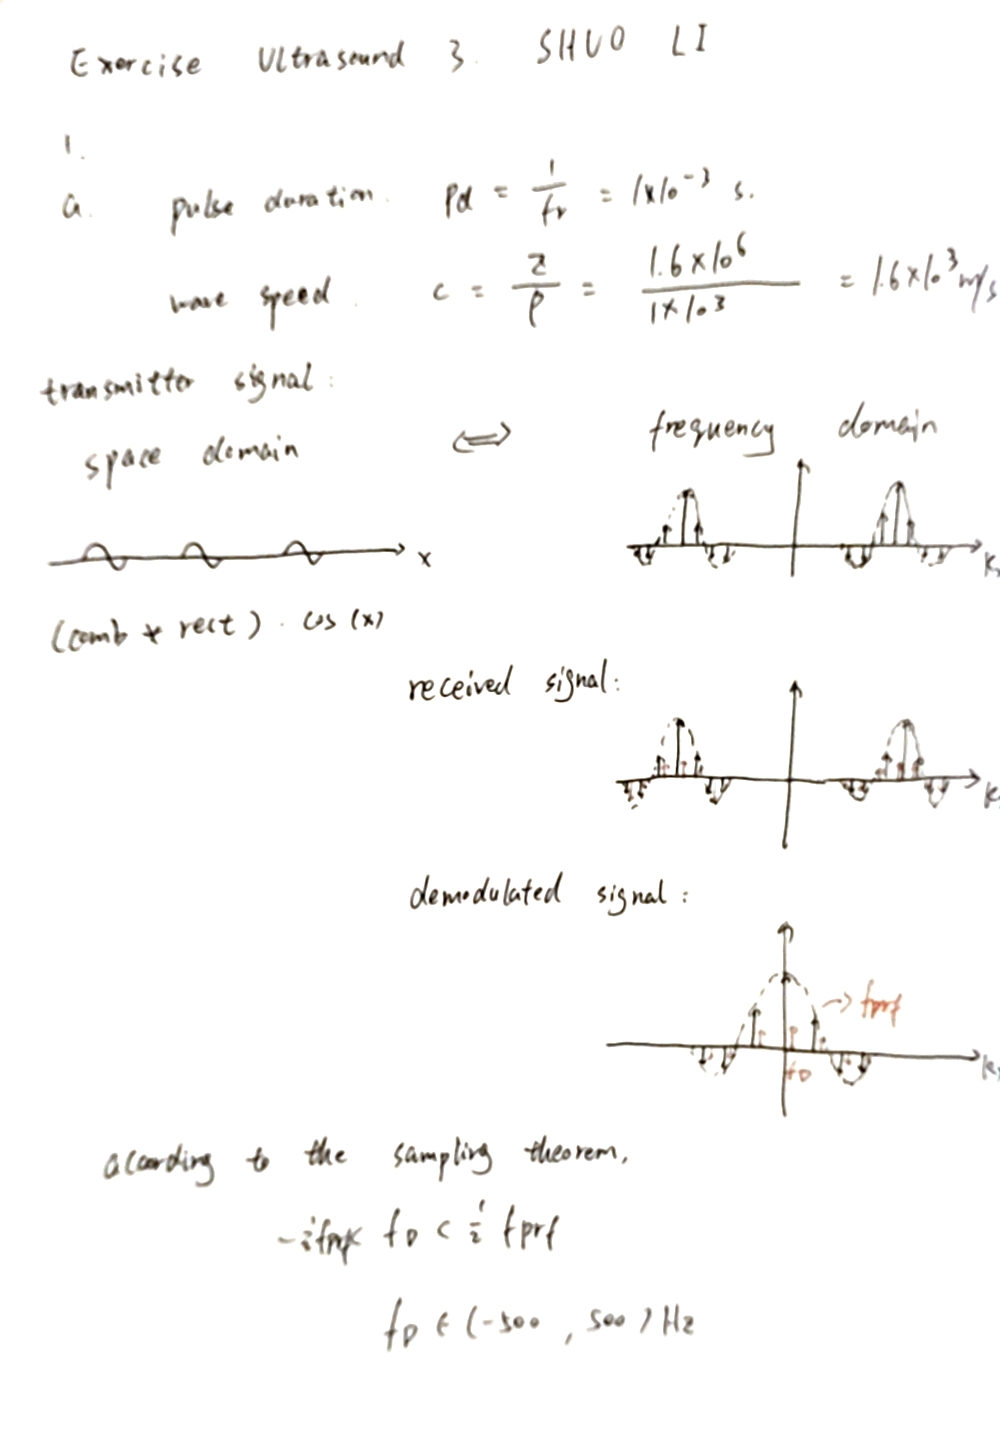 Exercise Ultrasound 3. SHUO LI
1.
a. pulse duration. Pd = 1/fr = 1×10⁻³ s.
wave speed. c = Z/ρ = 1.6×10⁶/1×10³ = 1.6×10³ m/s
transmitter signal:
space domain ⟺ frequency domain
x
(comb * rect) · cos(x)
received signal:
demodulated signal:
→ fprf
fD
according to the sampling theorem,
-½fprf< fD < ½ fprf
fD ∈ (-500, 500) Hz